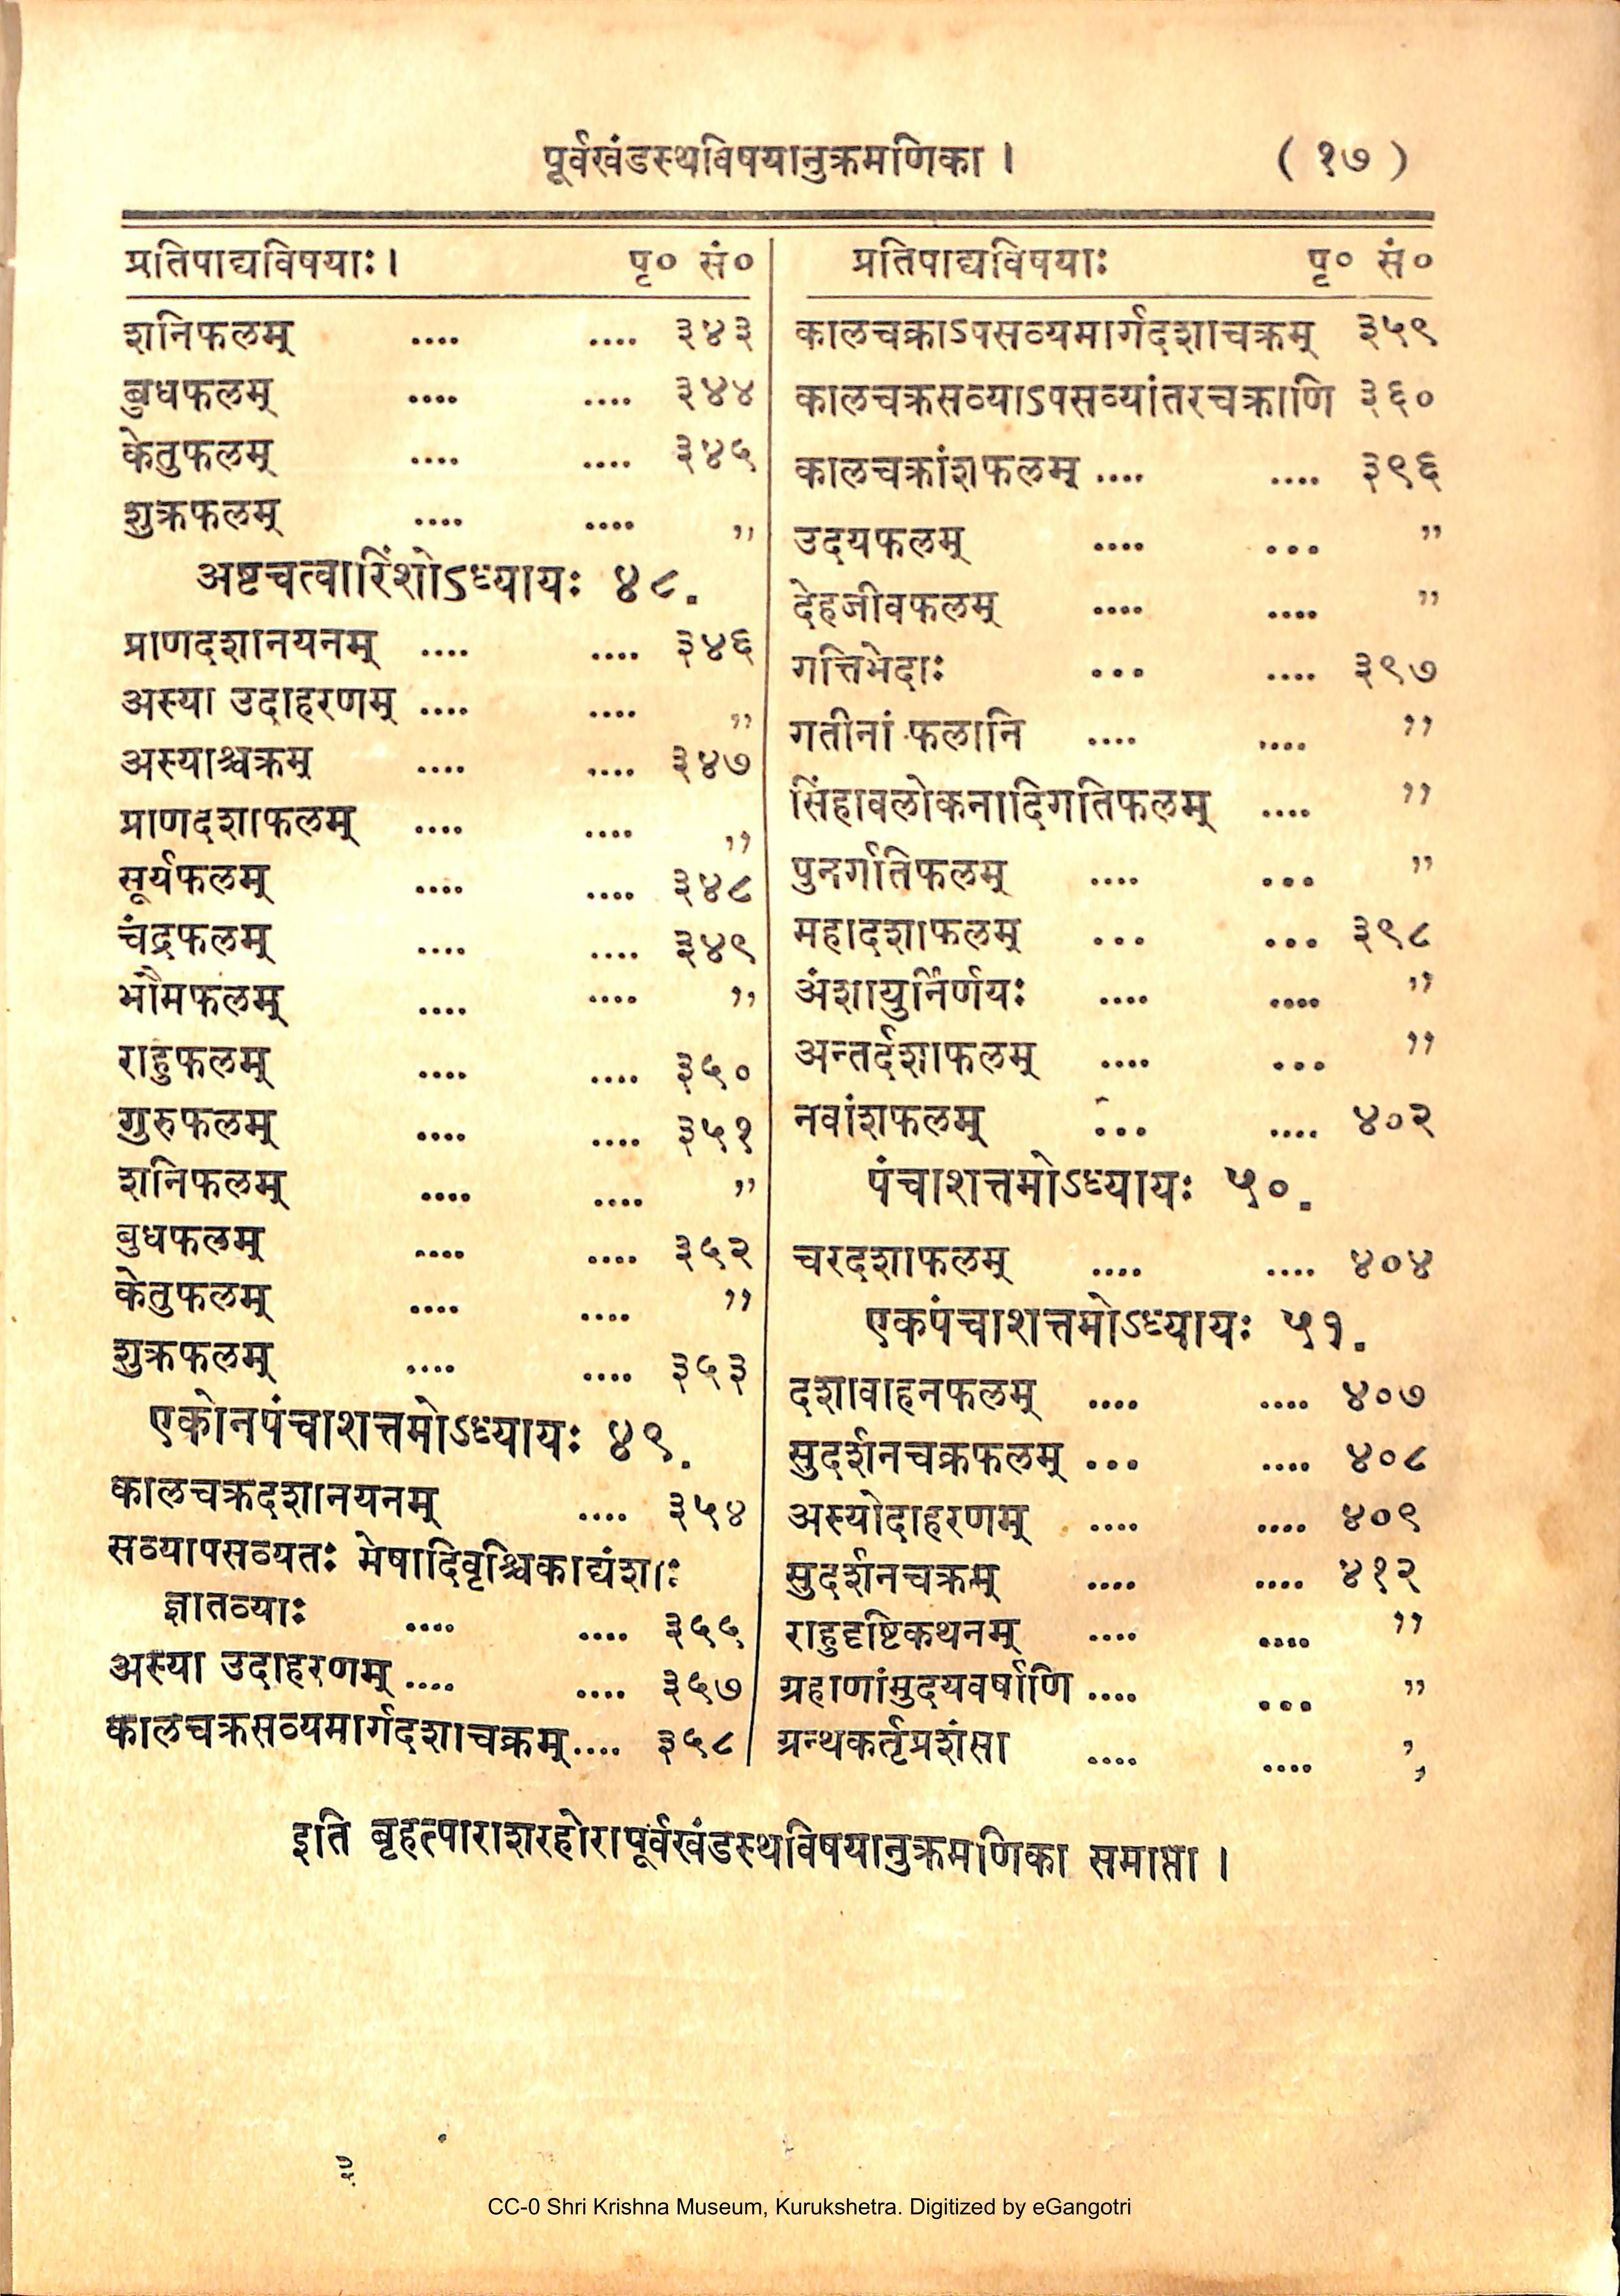 पूर्वखंडस्थविषयानुक्रमणिका । ( १७ )
प्रतिपाद्यविषयाः । पृ० सं०
शनिफलम् .... .... ३४३
बुधफलम् .... .... ३४४
केतुफलम् .... .... ३४५
शुक्रफलम् .... .... ,,
अष्टचत्वारिंशोऽध्यायः ४८.
प्राणदशानयनम् .... .... ३४६
अस्या उदाहरणम् .... .... ,,
अस्याश्चक्रम् .... .... ३४७
प्राणदशाफलम् .... .... ,,
सूर्यफलम् .... .... ३४८
चंद्रफलम् .... .... ३४९
भौमफलम् .... .... ,,
राहुफलम् .... .... ३५०
गुरुफलम् .... .... ३५१
शनिफलम् .... .... ,,
बुधफलम् .... .... ३५२
केतुफलम् .... .... ,,
शुक्रफलम् .... .... ३५३
एकोनपंचाशत्तमोऽध्यायः ४९.
कालचक्रदशानयनम् .... ३५४
सव्यापसव्यतः मेषादिवृश्चिकाद्यंशाः
ज्ञातव्याः .... .... ३५५
अस्या उदाहरणम् .... .... ३५७
कालचक्रसव्यमार्गदशाचक्रम् .... ३५८
प्रतिपाद्यविषयाः पृ० सं०
कालचक्राऽपसव्यमार्गदशाचक्रम् ३५९
कालचक्रसव्याऽपसव्यांतरचक्राणि ३६०
कालचक्रांशफलम् .... .... ३९६
उदयफलम् .... ... ,,
देहजीवफलम् .... .... ,,
गत्तिभेदाः ... .... ३९७
गतीनां फलानि .... .... ,,
सिंहावलोकनादिगतिफलम् .... ,,
पुनर्गतिफलम् .... ... ,,
महादशाफलम् ... ... ३९८
अंशायुर्निर्णयः .... .... ,,
अन्तर्दशाफलम् .... ... ,,
नवांशफलम् ... .... ४०२
पंचाशत्तमोऽध्यायः ५०.
चरदशाफलम् .... .... ४०४
एकपंचाशत्तमोऽध्यायः ५१.
दशावाहनफलम् .... .... ४०७
सुदर्शनचक्रफलम् ... .... ४०८
अस्योदाहरणम् .... .... ४०९
सुदर्शनचक्रम् .... .... ४१२
राहुदृष्टिकथनम् .... .... ,,
ग्रहाणांमुदयवर्षाणि .... ... ,,
ग्रन्थकर्तृप्रशंसा .... .... ,,
इति बृहत्पाराशरहोरापूर्वखंडस्थविषयानुक्रमणिका समाप्ता ।
CC-0 Shri Krishna Museum, Kurukshetra. Digitized by eGangotri